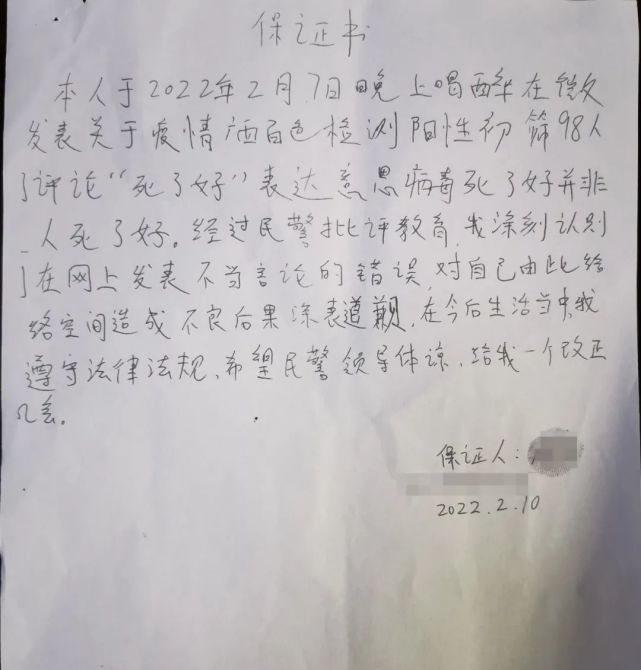 保证书
本人于2022年2月7日晚上喝醉在微友
发表关于疫情广西百色检测阳性初筛98人
了评论“死了好”表达意思病毒死了好并非
人死了好。经过民警批评教育,我深刻认别
了在网上发表不当言论的错误,对自己由此给
络空间造成不良后果深表道歉,在今后生活当中我
遵守法律法规、希望民警领导体谅、给我一个改正
几会。
保证人:
2022.2.10